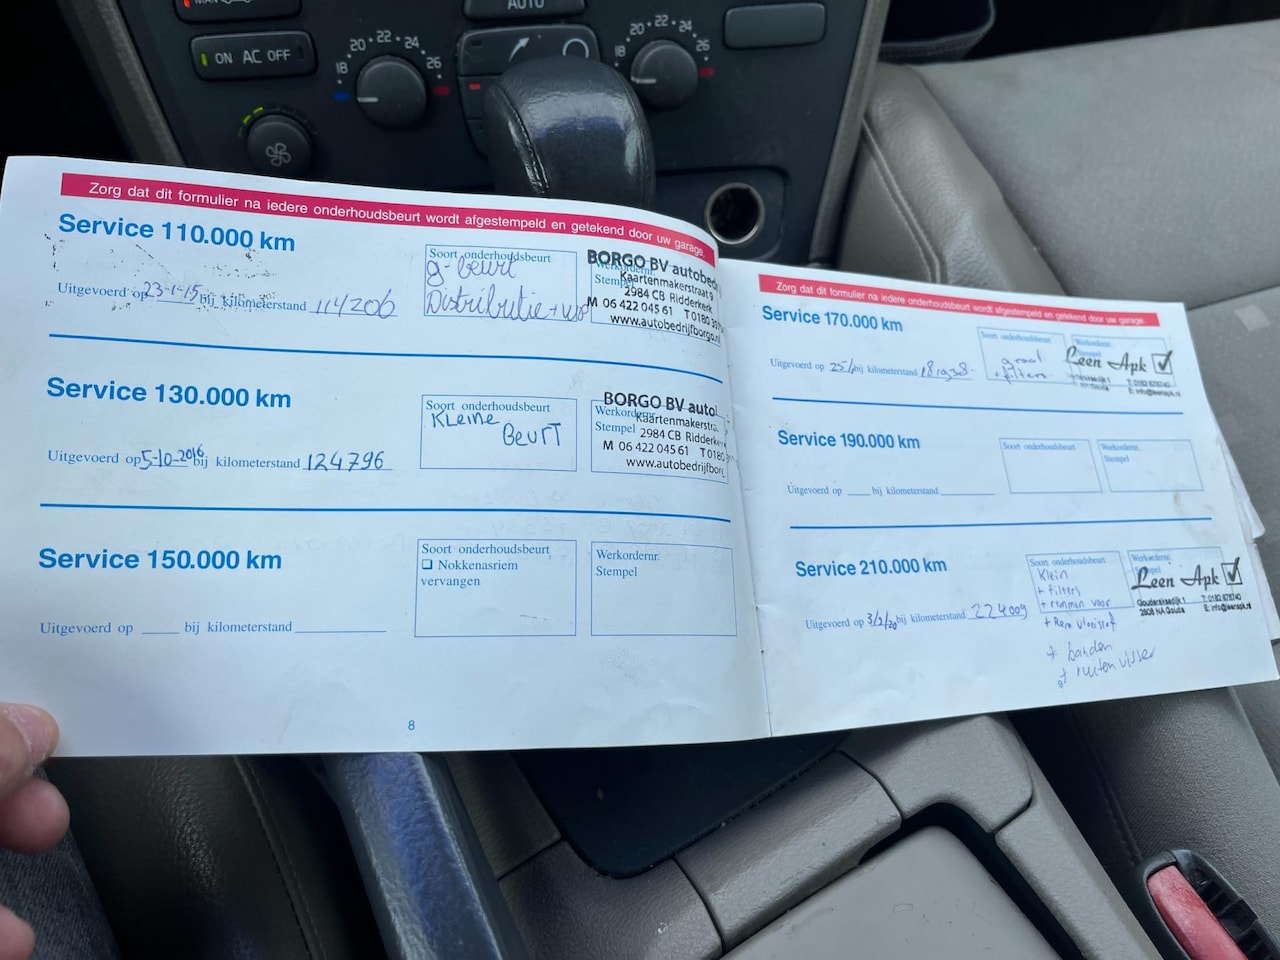 MAN
AUTO
ON AC OFF
18 20 22 24 26
18 20 22 24 26
Zorg dat dit formulier na iedere onderhoudsbeurt wordt afgestempeld en getekend door uw garage.
Service 110.000 km
Uitgevoerd op 23-1-15 bij kilometerstand 114206
Soort onderhoudsbeurt
g-beurt
Distributie +
Werkordernr.
Stempel
BORGO BV autobed
Kaartenmakerstraat 9
2984 CB Ridderkerk
M 06 422 045 61 T 0180
www.autobedrijfborgo.nl
Service 130.000 km
Uitgevoerd op 5-10-2016 bij kilometerstand 124796
Soort onderhoudsbeurt
Kleine
Beurt
Werkordernr.
Stempel
BORGO BV auto
Kaartenmakerstra
2984 CB Ridderkerk
M 06 422 045 61 T 0180
www.autobedrijfborg
Service 150.000 km
Uitgevoerd op bij kilometerstand
Soort onderhoudsbeurt
Nokkenasriem
vervangen
Werkordernr.
Stempel
8
Zorg dat dit formulier na iedere onderhoudsbeurt wordt afgestempeld en getekend door uw garage.
Service 170.000 km
Uitgevoerd op bij kilometerstand 181938
Soort onderhoudsbeurt
groot
+ filters
Werkordernr.
Stempel
Leen Apk
T: 0182 878740
E: info@leenapk.nl
Service 190.000 km
Uitgevoerd op bij kilometerstand
Soort onderhoudsbeurt
Werkordernr.
Stempel
Service 210.000 km
Uitgevoerd op 3/2/20 bij kilometerstand 224009
Soort onderhoudsbeurt
Klein
+ filters
+ remmen voor
+ Rem vloeistof
+ banden
+ ruitenwisser
Werkordernr.
Stempel
Leen Apk
Goudsesteeddijk 1 T: 0182 878740
2808 NA Gouda E: info@leenapk.nl